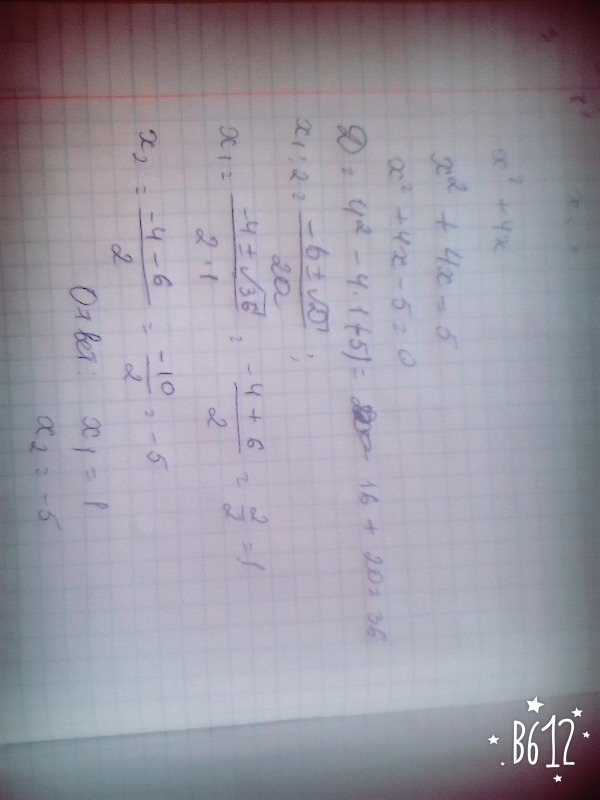 x² + 4x
x² + 4x = 5
x² + 4x - 5 = 0
D = 4² - 4·1(-5) = 16 + 20 = 36
x₁;₂ = (-b ± √D) / 2a ;
x₁ = (-4 ± √36) / (2·1) = (-4 + 6) / 2 = 2/2 = 1
x₂ = (-4 - 6) / 2 = -10/2 = -5
Ответ: x₁ = 1
x₂ = -5
B612